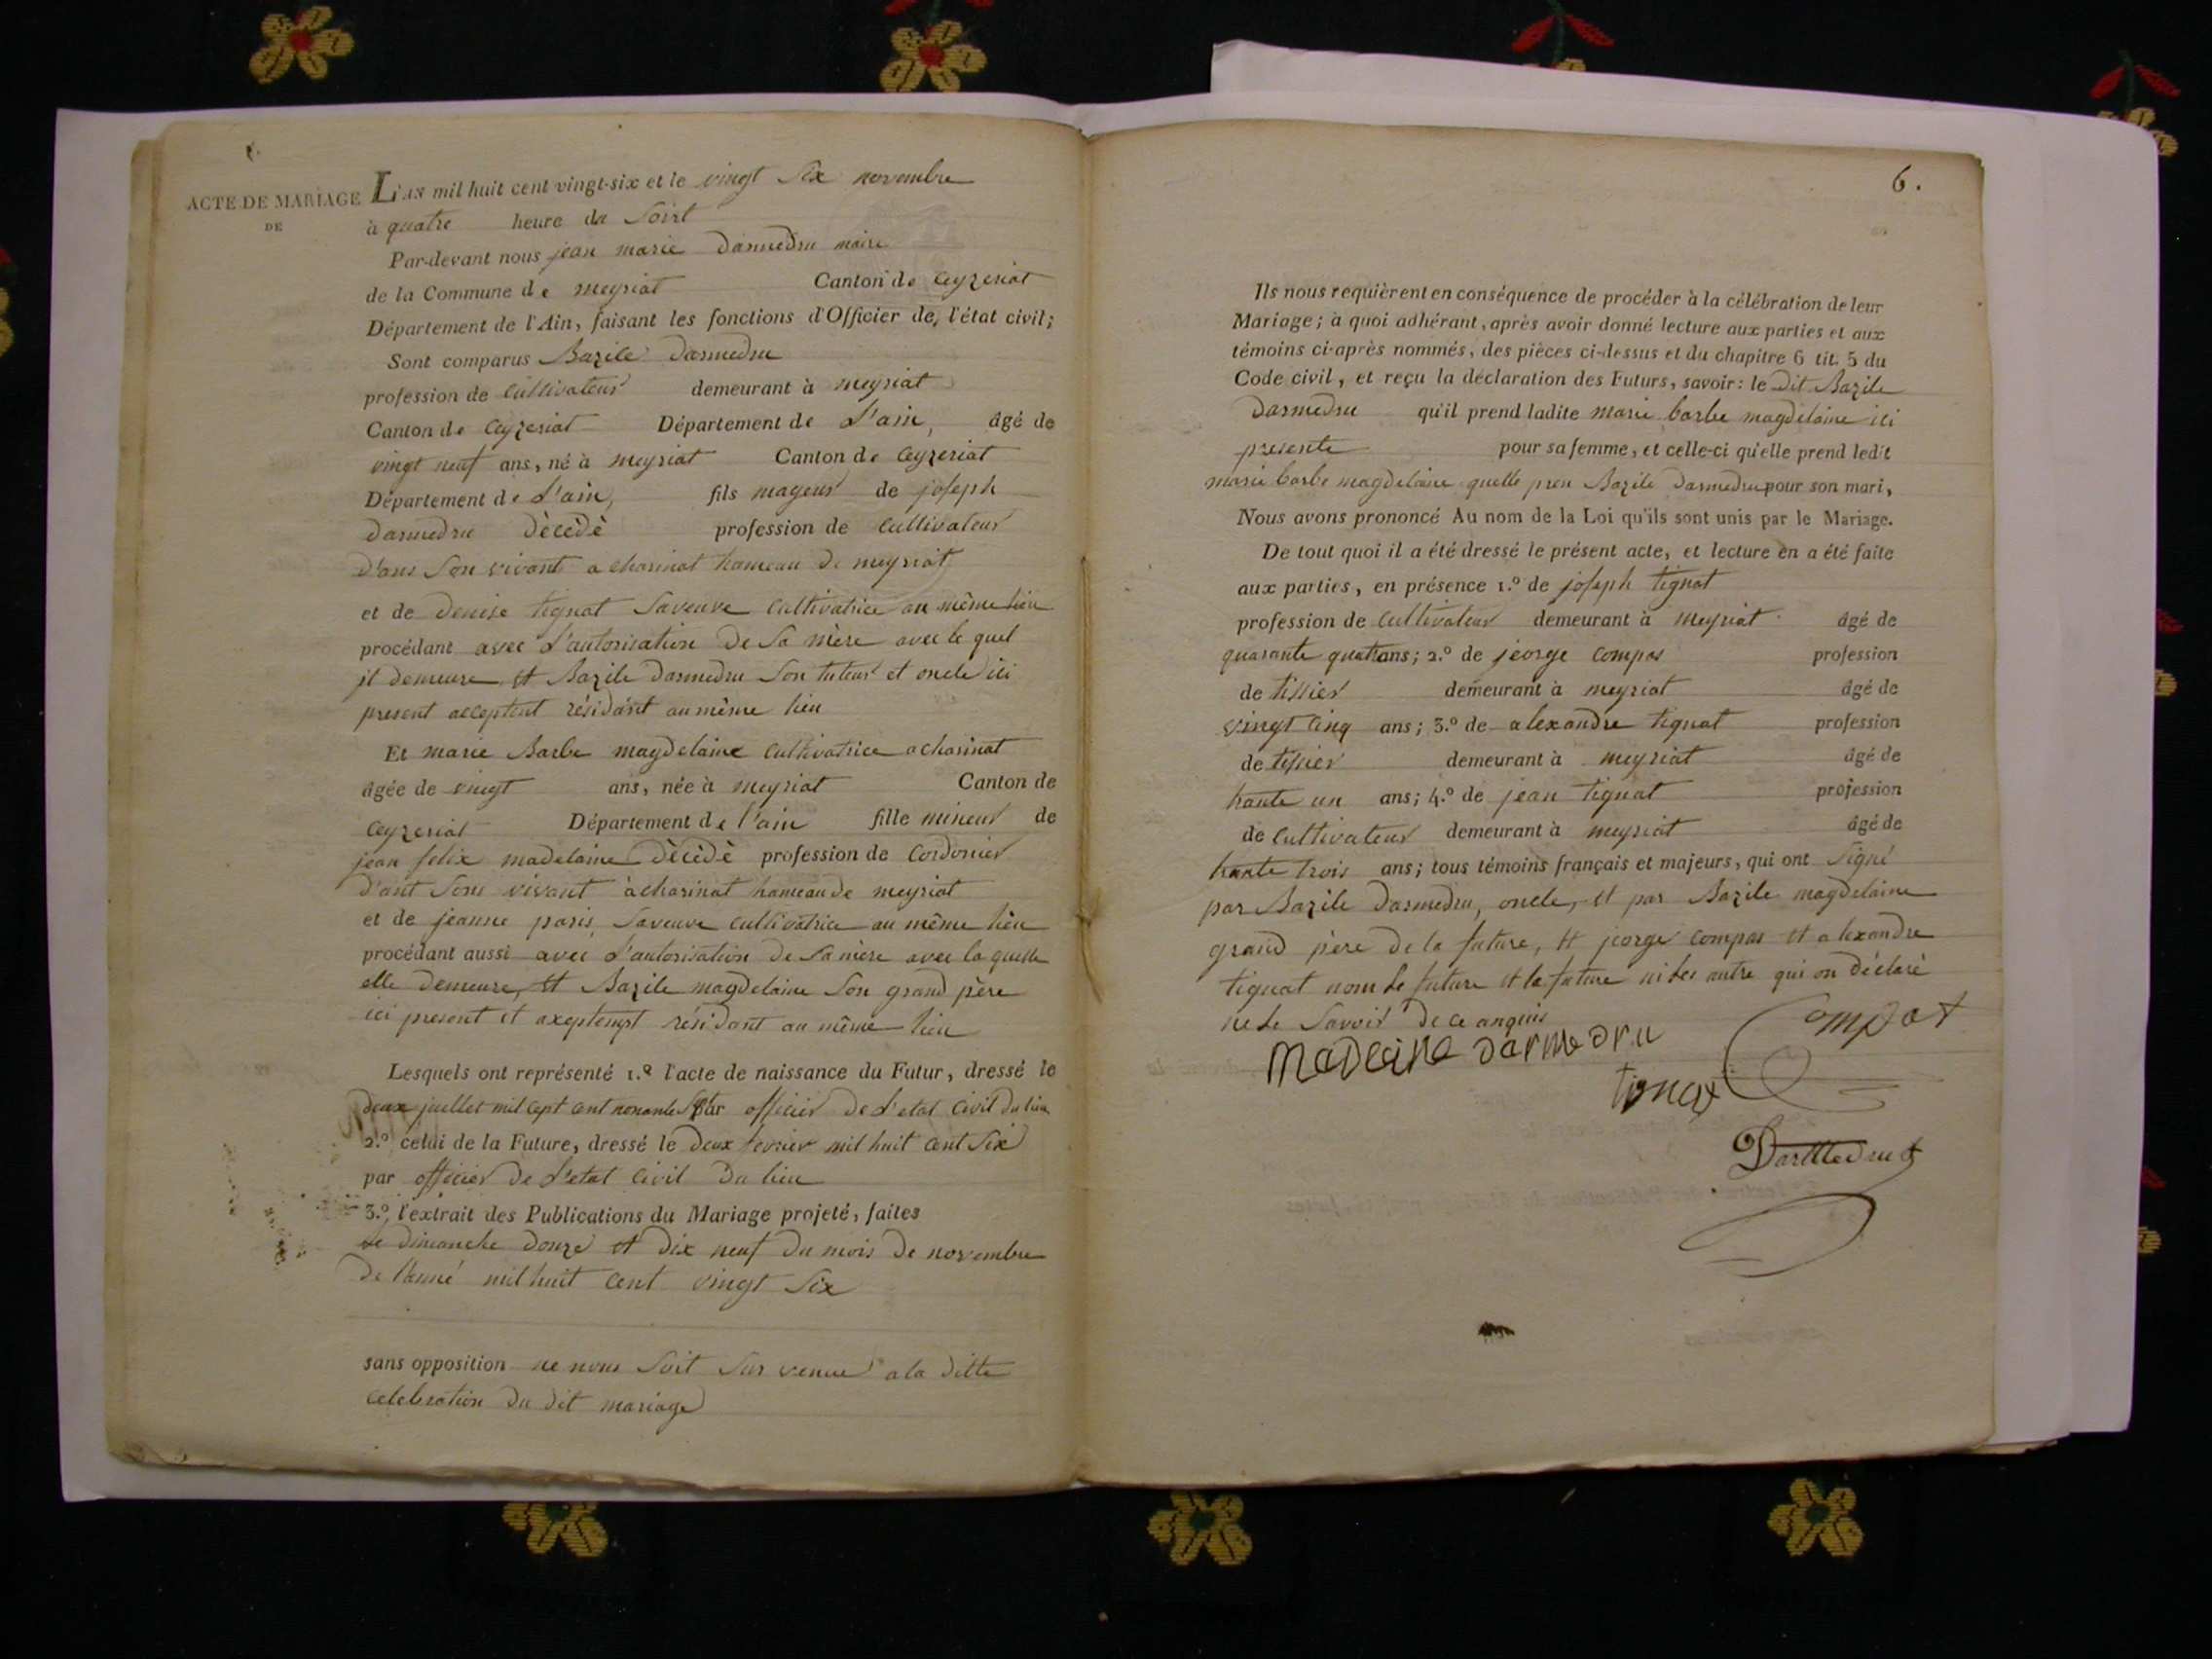 ACTE DE MARIAGE
DE
L'AN mil huit cent vingt-six et le vingt six novembre
à quatre heure du Soirt
Par-devant nous jean marie Darmedru maire
de la Commune de meyriat Canton de Ceyzeriat
Département de l'Ain, faisant les fonctions d'Officier de l'état civil;
Sont comparus Bazile Darmedru
profession de Cultivateur demeurant à meyriat
Canton de Ceyzeriat Département de L'ain, âgé de
vingt neuf ans, né à meyriat Canton de Ceyzeriat
Département de L'ain, fils mageur de joseph
Darmedru dècèdè profession de Cultivateur
D'ans Son vivant a charinat hameau de meyriat
et de Denise tignat Saveuve Cultivatrice au même lieu
procédant avec L'autorisation De Sa mère avec le quel
il demeure, et Bazile Darmedru Son tuteur et oncle ici
present acceptent résidant au même lieu
Et marie Barbe magdelaine Cultivatrice a charinat
âgée de vingt ans, née à meyriat Canton de
Ceyzeriat Département de l'ain fille mineur de
jean felix madelaine Dècèdè profession de Cordonier
d'ant Son vivant à charinat hameau de meyriat
et de jeanne paris, Saveuve cultivatrice au même lieu
procédant aussi avec L'autorisation De Sa mère avec la quelle
elle Demeure, et Bazile magdelaine Son grand père
ici present et axeptempt résidant au même lieu
Lesquels ont représenté 1.º l'acte de naissance du Futur, dressé le
deux juillet mil cept cent nonante Sept par officier De L'etat Civil Du lieu
2.º celui de la Future, dressé le Deux fevrier mil huit cent Six
par officier De L'etat Civil Du lieu
3.º l'extrait des Publications du Mariage projeté, faites
Le dimanche Douze et Dix neuf Du mois De novembre
De l'anné mil huit Cent vingt Six
sans opposition ne nous Soit Sur venue a la ditte
Celebration Du dit mariage
6.
Ils nous requièrent en conséquence de procéder à la célébration de leur
Mariage; à quoi adhérant, après avoir donné lecture aux parties et aux
témoins ci-après nommés, des pièces ci-dessus et du chapitre 6 tit. 5 du
Code civil, et reçu la déclaration des Futurs, savoir: le Dit Bazile
Darmedru qu'il prend ladite marie barbe magdelaine ici
presente pour sa femme, et celle-ci qu'elle prend ledit
marie barbe magdelaine quelle pren Bazile Darmedru pour son mari,
Nous avons prononcé Au nom de la Loi qu'ils sont unis par le Mariage.
De tout quoi il a été dressé le présent acte, et lecture en a été faite
aux parties, en présence 1.º de joseph tignat
profession de Cultivateur demeurant à meyriat âgé de
quarante quatre ans; 2.º de jeorge Compas profession
de tissier demeurant à meyriat âgé de
vingt cinq ans; 3.º de alexandre tignat profession
de tissier demeurant à meyriat âgé de
trante un ans; 4.º de jean tignat profession
de Cultivateur demeurant à meyriat âgé de
trante trois ans; tous témoins français et majeurs, qui ont Signé
par Bazile Darmedru, oncle, et par Bazile magdelaine
grand père De la future, et jeorge Compas et alexandre
tignat nom Le future et la future ni les autre qui on déclaré
ne Le Savoir De ce anquis
madelaine Darmedru
Compat
tignat
Darmedru